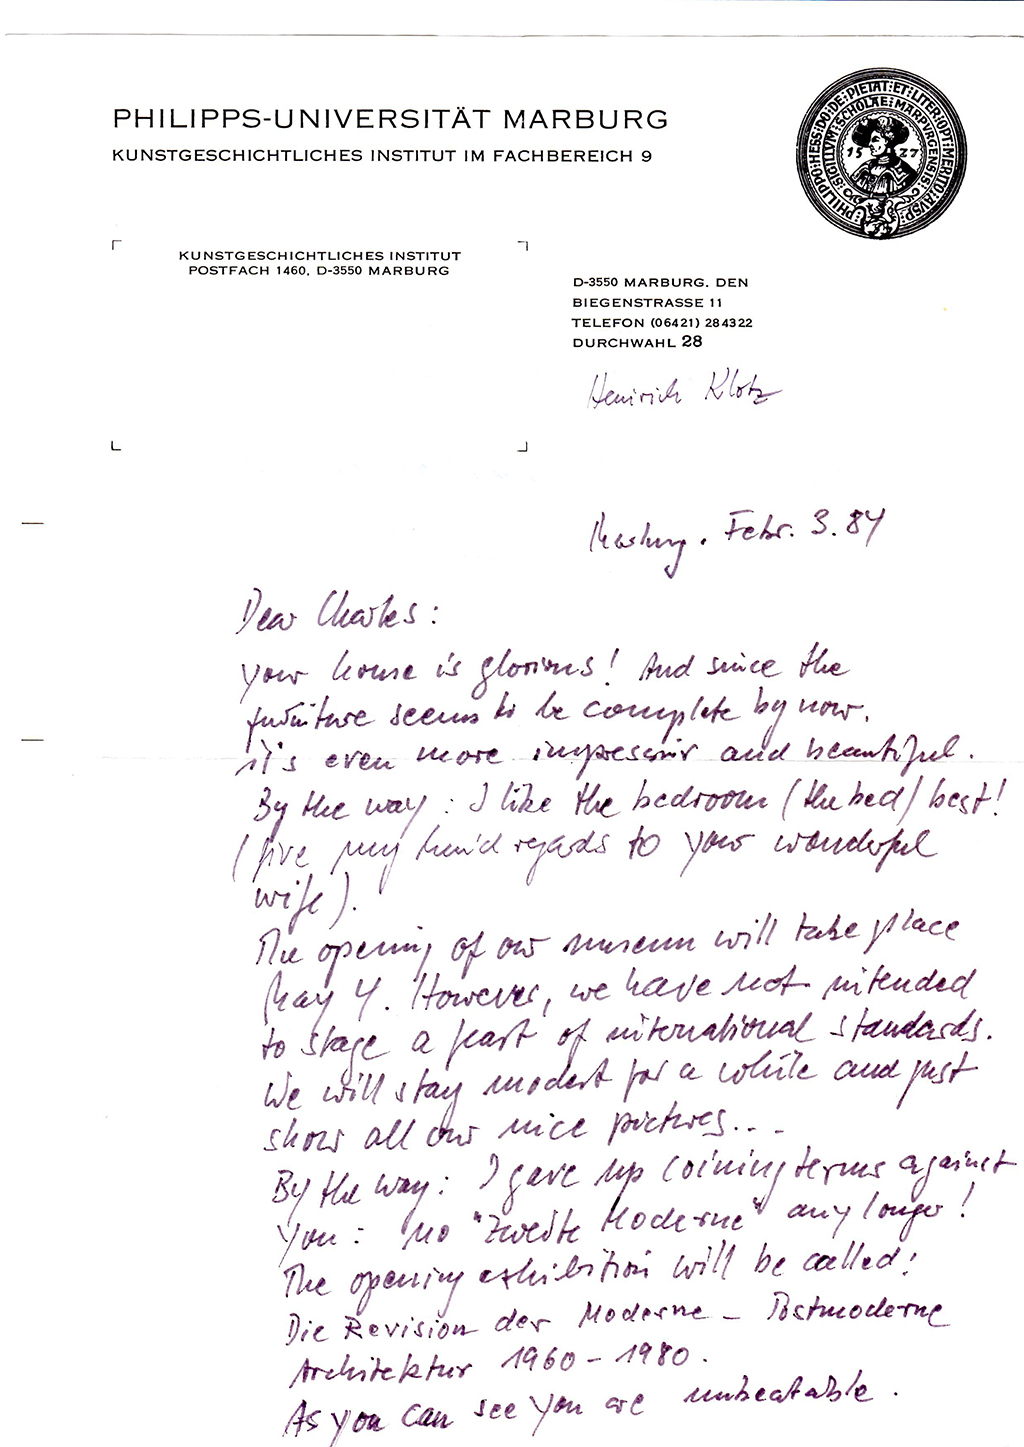 PHILIPPS-UNIVERSITÄT MARBURG
KUNSTGESCHICHTLICHES INSTITUT IM FACHBEREICH 9
PHILIPPO:HESS:DO:DE:PIETAT:ET:LITER:OPT:MERITO:AVSP:
SIGILLVM:SCHOLAE:MARPVRGENSIS:
1527
KUNSTGESCHICHTLICHES INSTITUT
POSTFACH 1460, D-3550 MARBURG
D-3550 MARBURG, DEN
BIEGENSTRASSE 11
TELEFON (06421) 284322
DURCHWAHL 28
Heinrich Klotz
Marburg. Febr. 3. 84
Dear Charles:
your house is glorious! And since the
furniture seems to be complete by now,
it's even more impressiv and beautiful.
By the way: I like the bedroom (the bed) best!
(Give my kind regards to your wonderful
wife).
The opening of our museum will take place
May 4. However, we have not intended
to stage a feast of international standards.
We will stay modest for a while and just
show all our nice pictures...
By the way: I gave up coining terms against
you: no "Zweite Moderne" any longer!
The opening exhibition will be called:
Die Revision der Moderne - Postmoderne
Architektur 1960-1980.
As you can see you are unbeatable.